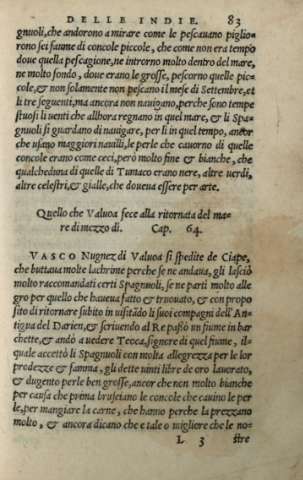 DELLE INDIE. 83
gnuoli, che andorono a mirare come le pescauano piglio-
rono sei some di concole piccole, che come non era tempo
doue quella pescagione, ne introrno molto dentro del mare,
ne molto fondo, doue erano le grosse, pescorno quelle pic-
cole, & non solamente non pescano il mese di Settembre, et
li tre seguenti, ma ancora non nauigano, perche sono tempe
stuosi li uenti che allhora regnano in quel mare, & li Spa-
gnuoli si guardano di nauigare, per li in quel tempo, ancor
che usano maggiori nauili, le perle che cauorno di quelle
concole erano come ceci, però molto fine & bianche, che
qualcheduna di quelle di Tumaco erano nere, altre uerdi,
altre celestri, & gialle, che doueua essere per arte.
Quello che Valuoa fece alla ritornata del ma-
re di mezzo di. Cap. 64.
VASCO Nugnez di Valuoa si spedite de Ciape,
che buttaua molte lachrime perche se ne andaua, gli lasciò
molto raccomandati certi Spagnuoli, se ne partì molto alle
gro per quello che haueua fatto & truouato, & con propo
sito di ritornare subito in uisitãdo li suoi compagni dell'An-
tigua del Darien, & scriuendo al Re passò un fiume in bar
chette, & andò a uedere Teoca, signore di quel fiume, il-
quale accettò li Spagnuoli con molta allegrezza per le lor
prodezze & famma, gli dette uinti libre de oro lauorato,
& dugento perle ben grosse, ancor che non molto bianche
per causa che prima brusciano le concole che cauino le per
le, per mangiare la carne, che hanno perche la prezzano
molto, & ancora dicano che e tale o migliore che le no-
L 3 stre